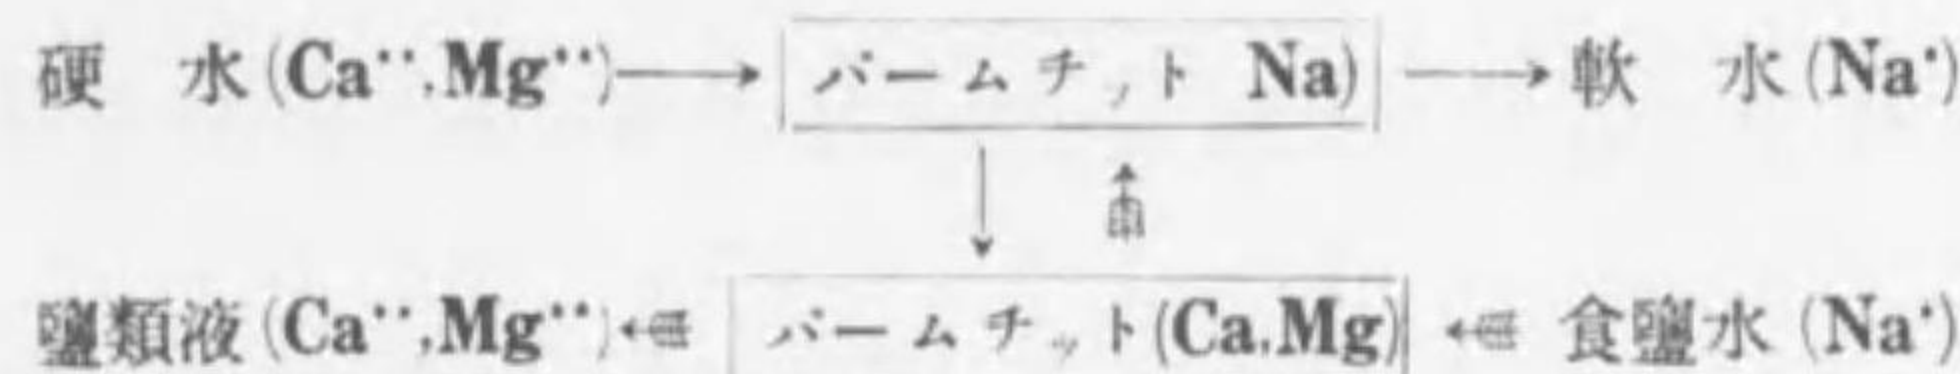 硬 水(Ca··,Mg··)→ パームチット Na) → 軟 水(Na·)
鹽類液(Ca··,Mg··)← パームチット(Ca,Mg) ← 食鹽水(Na·)